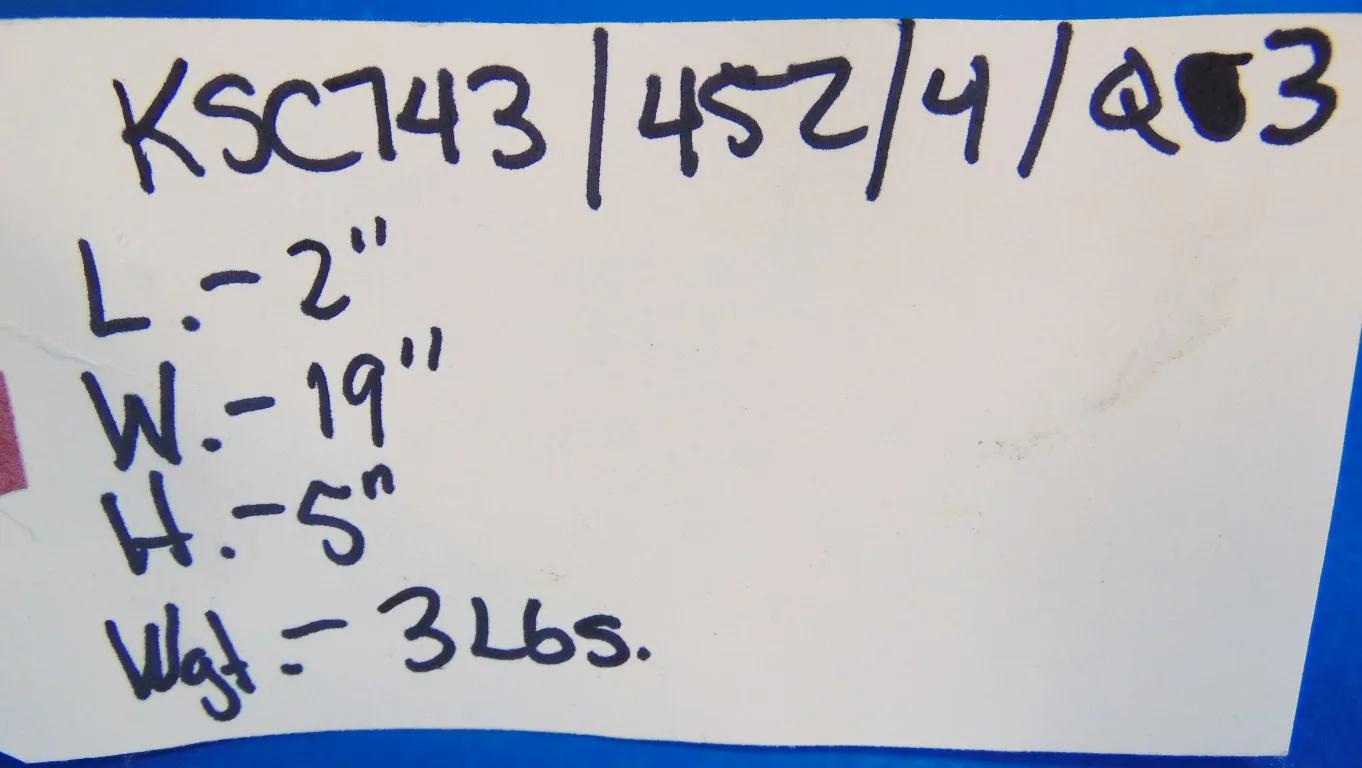 KSC743/452/4/Q3
L.- 2"
W.- 19"
H.- 5"
Wgt.- 3 Lbs.